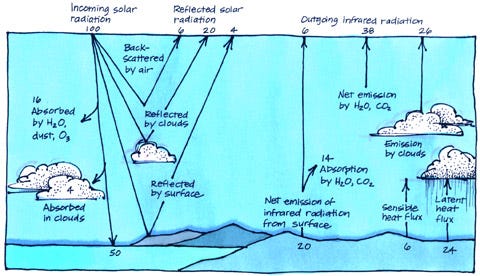 Incoming solar
radiation
100
Reflected solar
radiation
6 20 4
Outgoing infrared radiation
6 38 26
Back-
scattered
by air
16
Absorbed
by H2O,
dust, O3
Reflected
by clouds
Net emission
by H2O, CO2
Emission
by clouds
4
Absorbed
in clouds
Reflected
by surface
14
Absorption
by H2O, CO2
Net emission of
infrared radiation
from surface
Sensible
heat flux
Latent
heat
flux
50
20
6
24